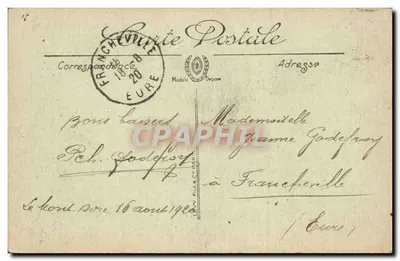 Carte Postale
Correspondance
Adresse
Modèle Déposé
FRANCHEVILLE
18 -8
20
EURE
Bons baisers
Godefroy
Le 16 août 1920
Mademoiselle
Jeanne Godefroy
à Francheville
(Eure)
CPAPHIL.COM